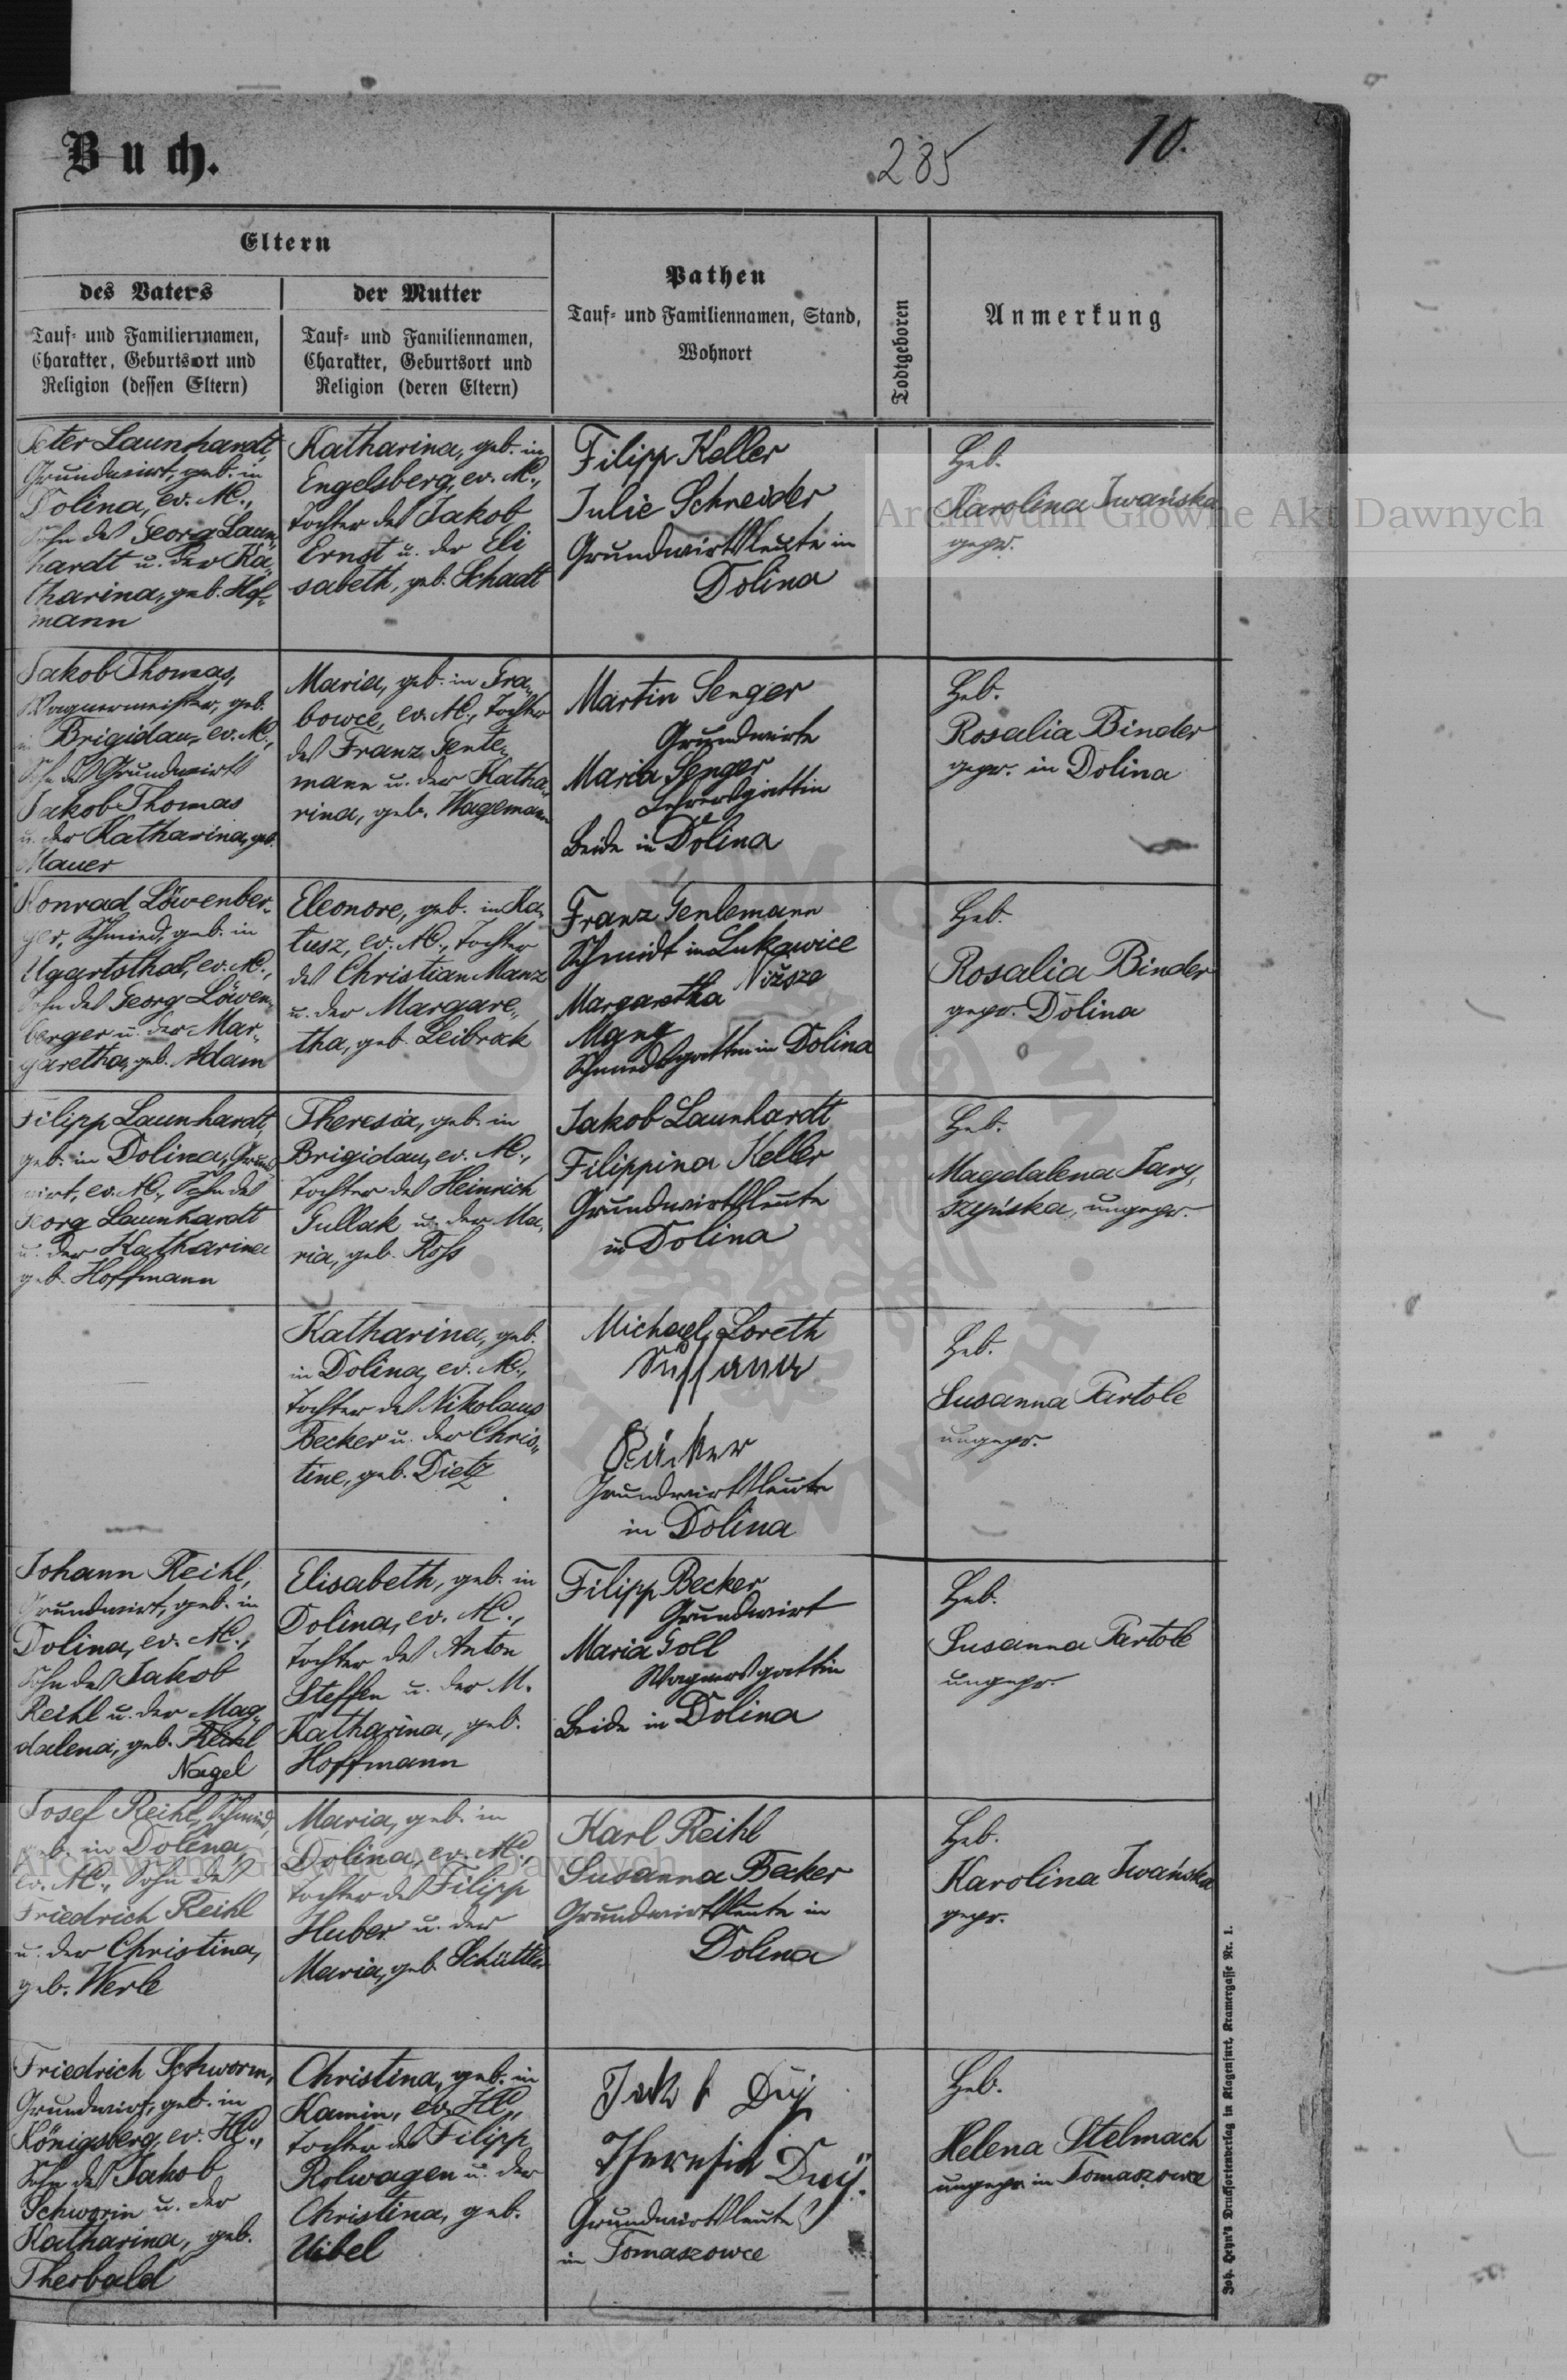 Buch.
285
10.
Eltern
des Vaters
Tauf- und Familiennamen,
Charakter, Geburtsort und
Religion (dessen Eltern)
der Mutter
Tauf- und Familiennamen,
Charakter, Geburtsort und
Religion (deren Eltern)
Pathen
Tauf- und Familiennamen, Stand,
Wohnort
Todtgeboren
Anmerkung
Peter Launhardt,
Grundwirt, geb. in
Dolina, ev. AC.,
Sohn des Georg Laun„
hardt u. der Ka„
tharina, geb. Hof„
mann
Katharina, geb. in
Engelsberg, ev. AC.,
Tochter des Jakob
Ernst u. der Eli
sabeth, geb. Schadt
Filipp Keller
Julie Schneider
Grundwirtsleute in
Dolina
Heb.
Karolina Iwańska
gepr.
Jakob Thomas,
Wagnermeister, geb.
in Brigidau, ev. AC.,
Sohn des Grundwirts
Jakob Thomas
u. der Katharina, geb.
Mauer
Maria, geb. in Gra„
bowce, ev. AC., Tochter
des Franz Gente„
mann u. der Katha„
rina, geb. Wagemann
Martin Senger
Grundwirt
Maria Senger
Lehrersgattin
Beide in Dolina
Heb.
Rosalia Binder
gepr. in Dolina
Konrad Löwenber„
ger, Schmied, geb. in
Ugartsthal, ev. AC.,
Sohn des Georg Löwen„
berger u. der Mar„
garetha, geb. Adam
Eleonore, geb. in Ka„
tusz, ev. AC., Tochter
des Christian Manz
u. der Margare„
tha, geb. Leibrock
Franz Gentemann
Schmidt in Lukawice
Niższe
Margaretha
Manz
Schmiedsgattin in Dolina
Heb.
Rosalia Binder
gepr. Dolina
Filipp Launhardt,
geb. in Dolina, Grund
wirt, ev. AC., Sohn des
Georg Launhardt
u. der Katharina
geb. Hoffmann
Theresia, geb. in
Brigidau, ev. AC.,
Tochter des Heinrich
Gullak u. der Ma„
ria, geb. Ross
Jakob Launhardt
Filippina Keller
Grundwirtsleute
in Dolina
Heb.
Magdalena Jary„
szyńska, ungepr.
Katharina, geb.
in Dolina, ev. AC.,
Tochter des Nikolaus
Becker u. der Chris„
tine, geb. Dietz
Michael Loreth
Sussanna
Grundwirtsleute
in Dolina
Heb.
Susanna Partole
ungepr.
Johann Reihl,
Grundwirt, geb. in
Dolina, ev. AC.,
Sohn des Jakob
Reihl u. der Mag„
dalena, geb. Reihl
Nagel
Elisabeth, geb. in
Dolina, ev. AC.,
Tochter des Anton
Steffen u. der M.
Katharina, geb.
Hoffmann
Filipp Becker
Grundwirt
Maria Goll
Wagnersgattin
Beide in Dolina
Heb.
Susanna Partole
ungepr.
Josef Reihl, Schmied,
geb. in Dolina,
ev. AC., Sohn des
Friedrich Reihl
u. der Christina,
geb. Werle
Maria, geb. in
Dolina, ev. AC.,
Tochter des Filipp
Huber u. der
Maria, geb. Schüttler
Karl Reihl
Susanna Becker
Grundwirtsleute in
Dolina
Heb.
Karolina Iwańska
gepr.
Friedrich Schworm,
Grundwirt, geb. in
Königsberg, ev. HC.,
Sohn des Jakob
Schworm u. der
Katharina, geb.
Therbald
Christina, geb. in
Kamin, ev. HC.,
Tochter des Filipp
Rolwagen u. der
Christina, geb.
Uibel
Jakob Duy
Theresia Duy
Grundwirtsleute
in Tomaszowce
Heb.
Helena Stelmach
ungepr. in Tomaszowce
Joh. Heyn's Drucksortenverlag in Klagenfurt, Kramergasse Nr. 1.
Archiwum Główne Akt Dawnych
Archiwum Główne Akt Dawnych